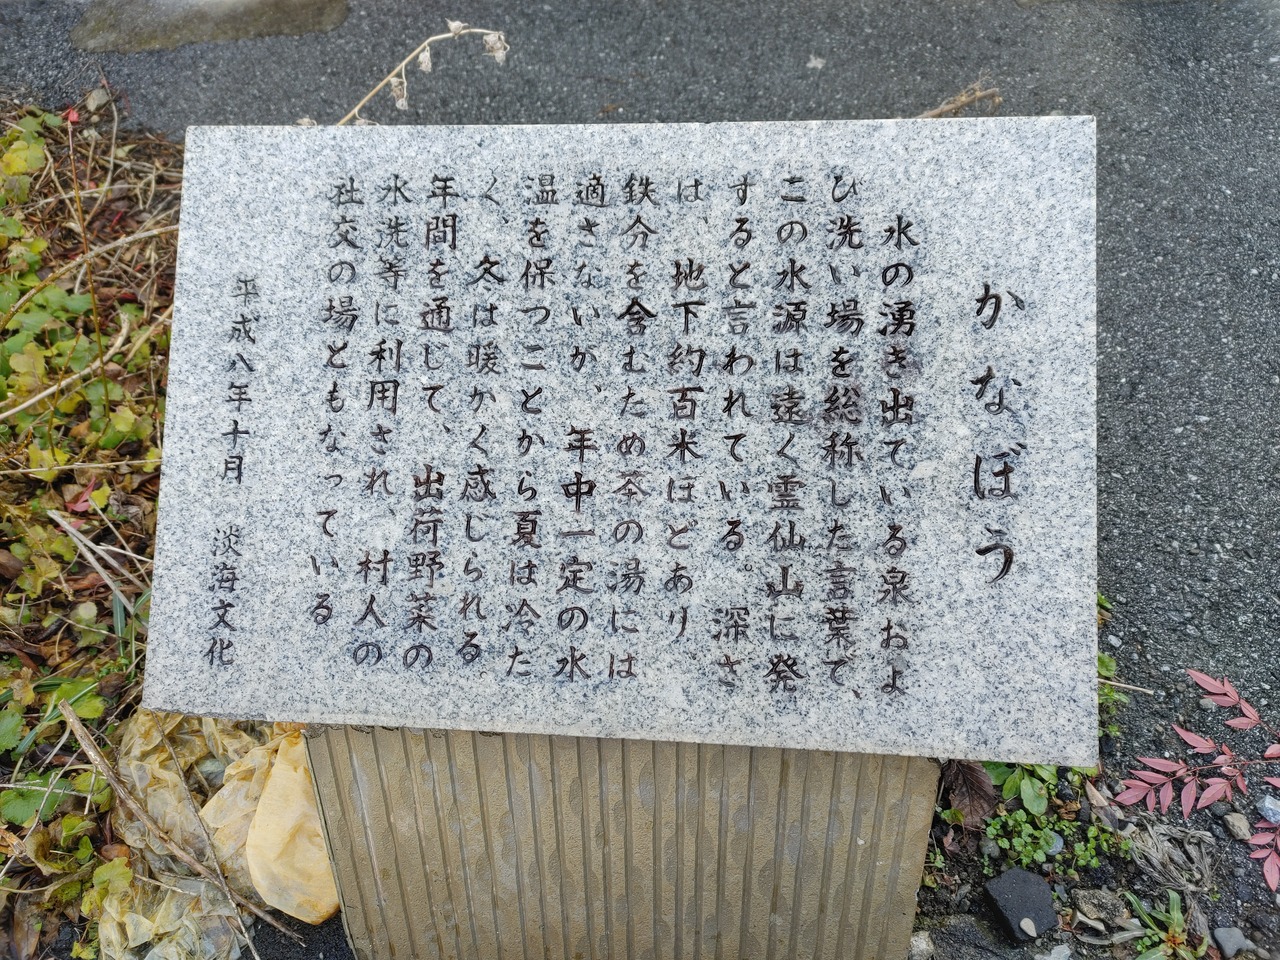 かなぼう
水の湧き出ている泉およ
び洗い場を総称した言葉で、
この水源は遠く霊仙山に発
すると言われている。深さ
は、地下約百米ほどあり
鉄分を含むため茶の湯には
適さないが、年中一定の水
温を保つことから夏は冷た
く、冬は暖かく感じられる。
年間を通じて、出荷野菜の
水洗等に利用され、村人の
社交の場ともなっている
平成八年十月 淡海文化